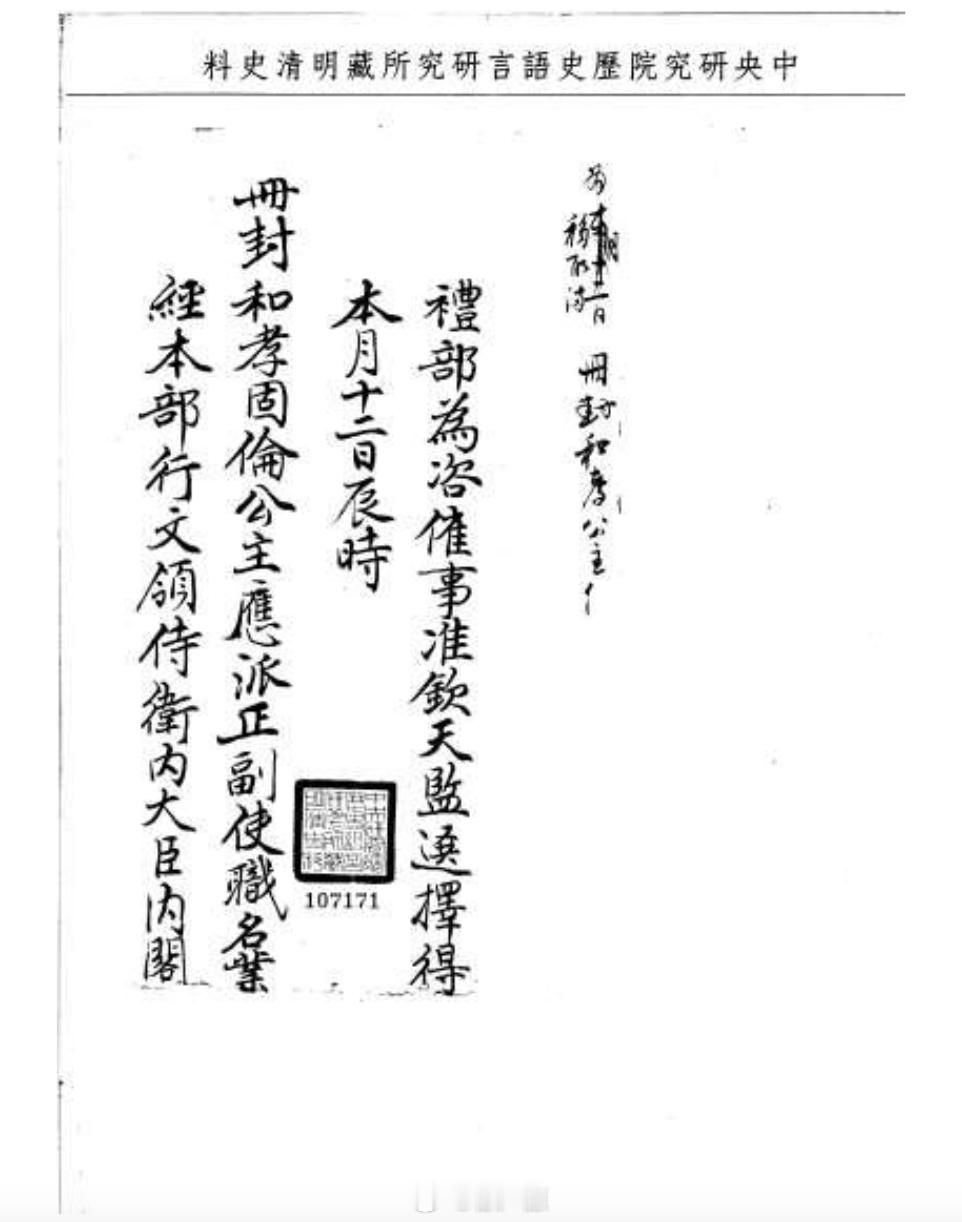 中央研究院歷史語言研究所藏明清史料
冊封和孝公主
禮部為咨催事准欽天監選擇得
本月十二日辰時
冊封和孝固倫公主應派正副使職名業
經本部行文領侍衛內大臣內閣
107171